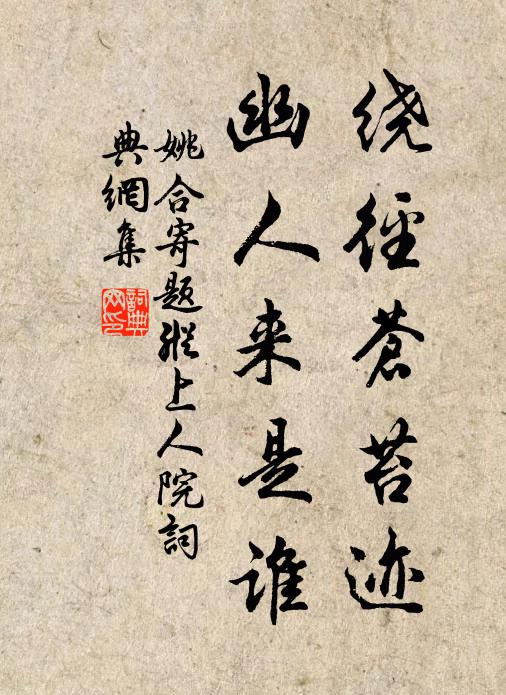 绕径苍苔迹
幽人来是谁
姚合寄题纵上人院词
典网集
詞典网印